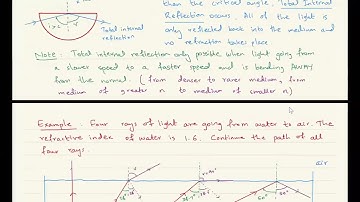 than the critical angle. Total Internal
Reflection occurs. All of the light is
only reflected back into the medium and
no refraction takes place
Total internal
reflection
Note: Total internal reflection only possible when light going from
a slower speed to a faster speed and is bending AWAY
from the normal. (from denser to rarer medium, from
medium of greater n to medium of smaller n)
Example: Four rays of light are going from water to air. The
refractive index of water is 1.6. Continue the path of all
four rays.
air